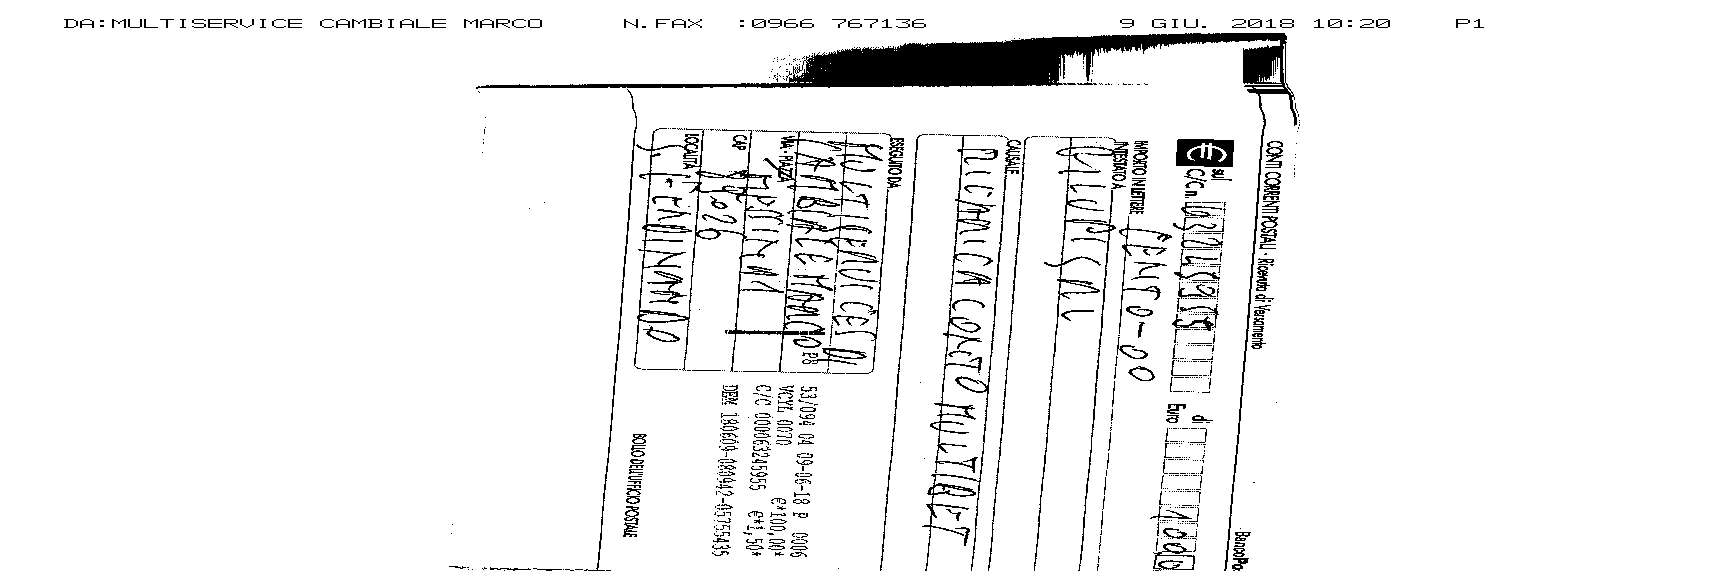 DA:MULTISERVICE CAMBIALE MARCO N.FAX :0966 767136 9 GIU. 2018 10:20 P1
CONTI CORRENTI POSTALI - Ricevuta di Versamento BancoPo
€ sul C/C n. 63245955 di Euro 1000
IMPORTO IN LETTERE CENTO-00
INTESTATO A
CAUSALE
RICARICA CONTO MULTIBET
ESEGUITO DA
MULTISERVICE DI
CAMBIALE MARCO
VIA - PIAZZA
CAP
LOCALITÀ
S. FERDINANDO
53/094 04 09-06-18 P 0006
VCYL 0070 €*100,00*
C/C 000063245955 €*1,50*
DEM 180609-080942-05755435
BOLLO DELL'UFFICIO POSTALE